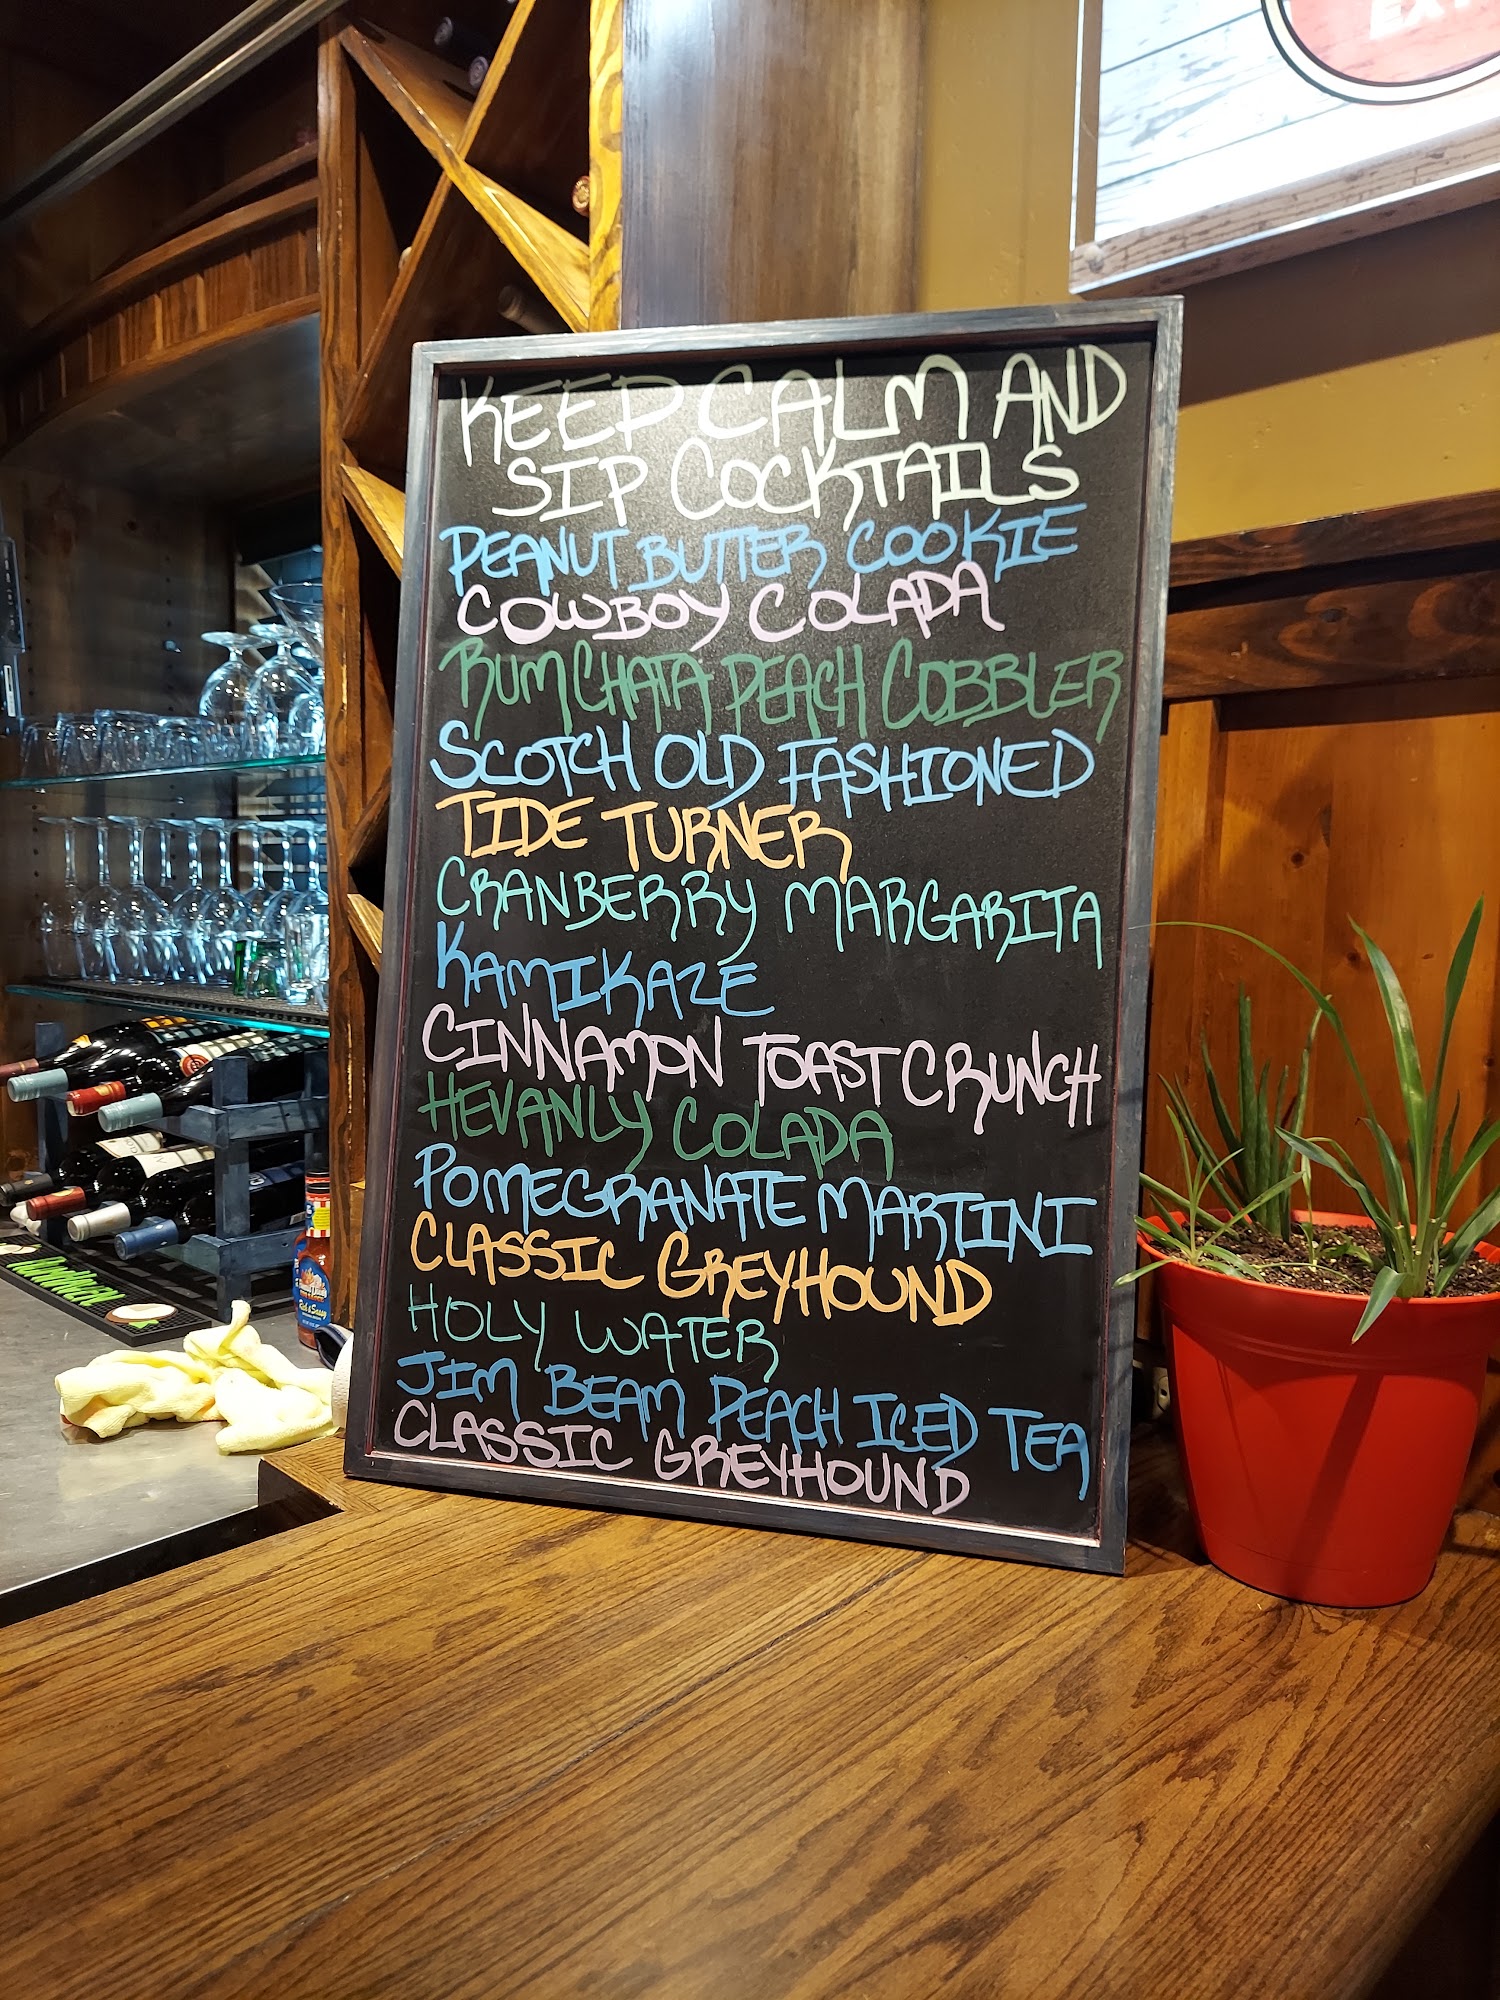 EX
KEEP CALM AND
SIP COCKTAILS
PEANUT BUTTER COOKIE
COWBOY COLADA
RUMCHATA PEACH COBBLER
SCOTCH OLD FASHIONED
TIDE TURNER
CRANBERRY MARGARITA
KAMIKAZE
CINNAMON TOAST CRUNCH
HEVANLY COLADA
POMEGRANATE MARTINI
CLASSIC GREYHOUND
HOLY WATER
JIM BEAM PEACH ICED TEA
CLASSIC GREYHOUND